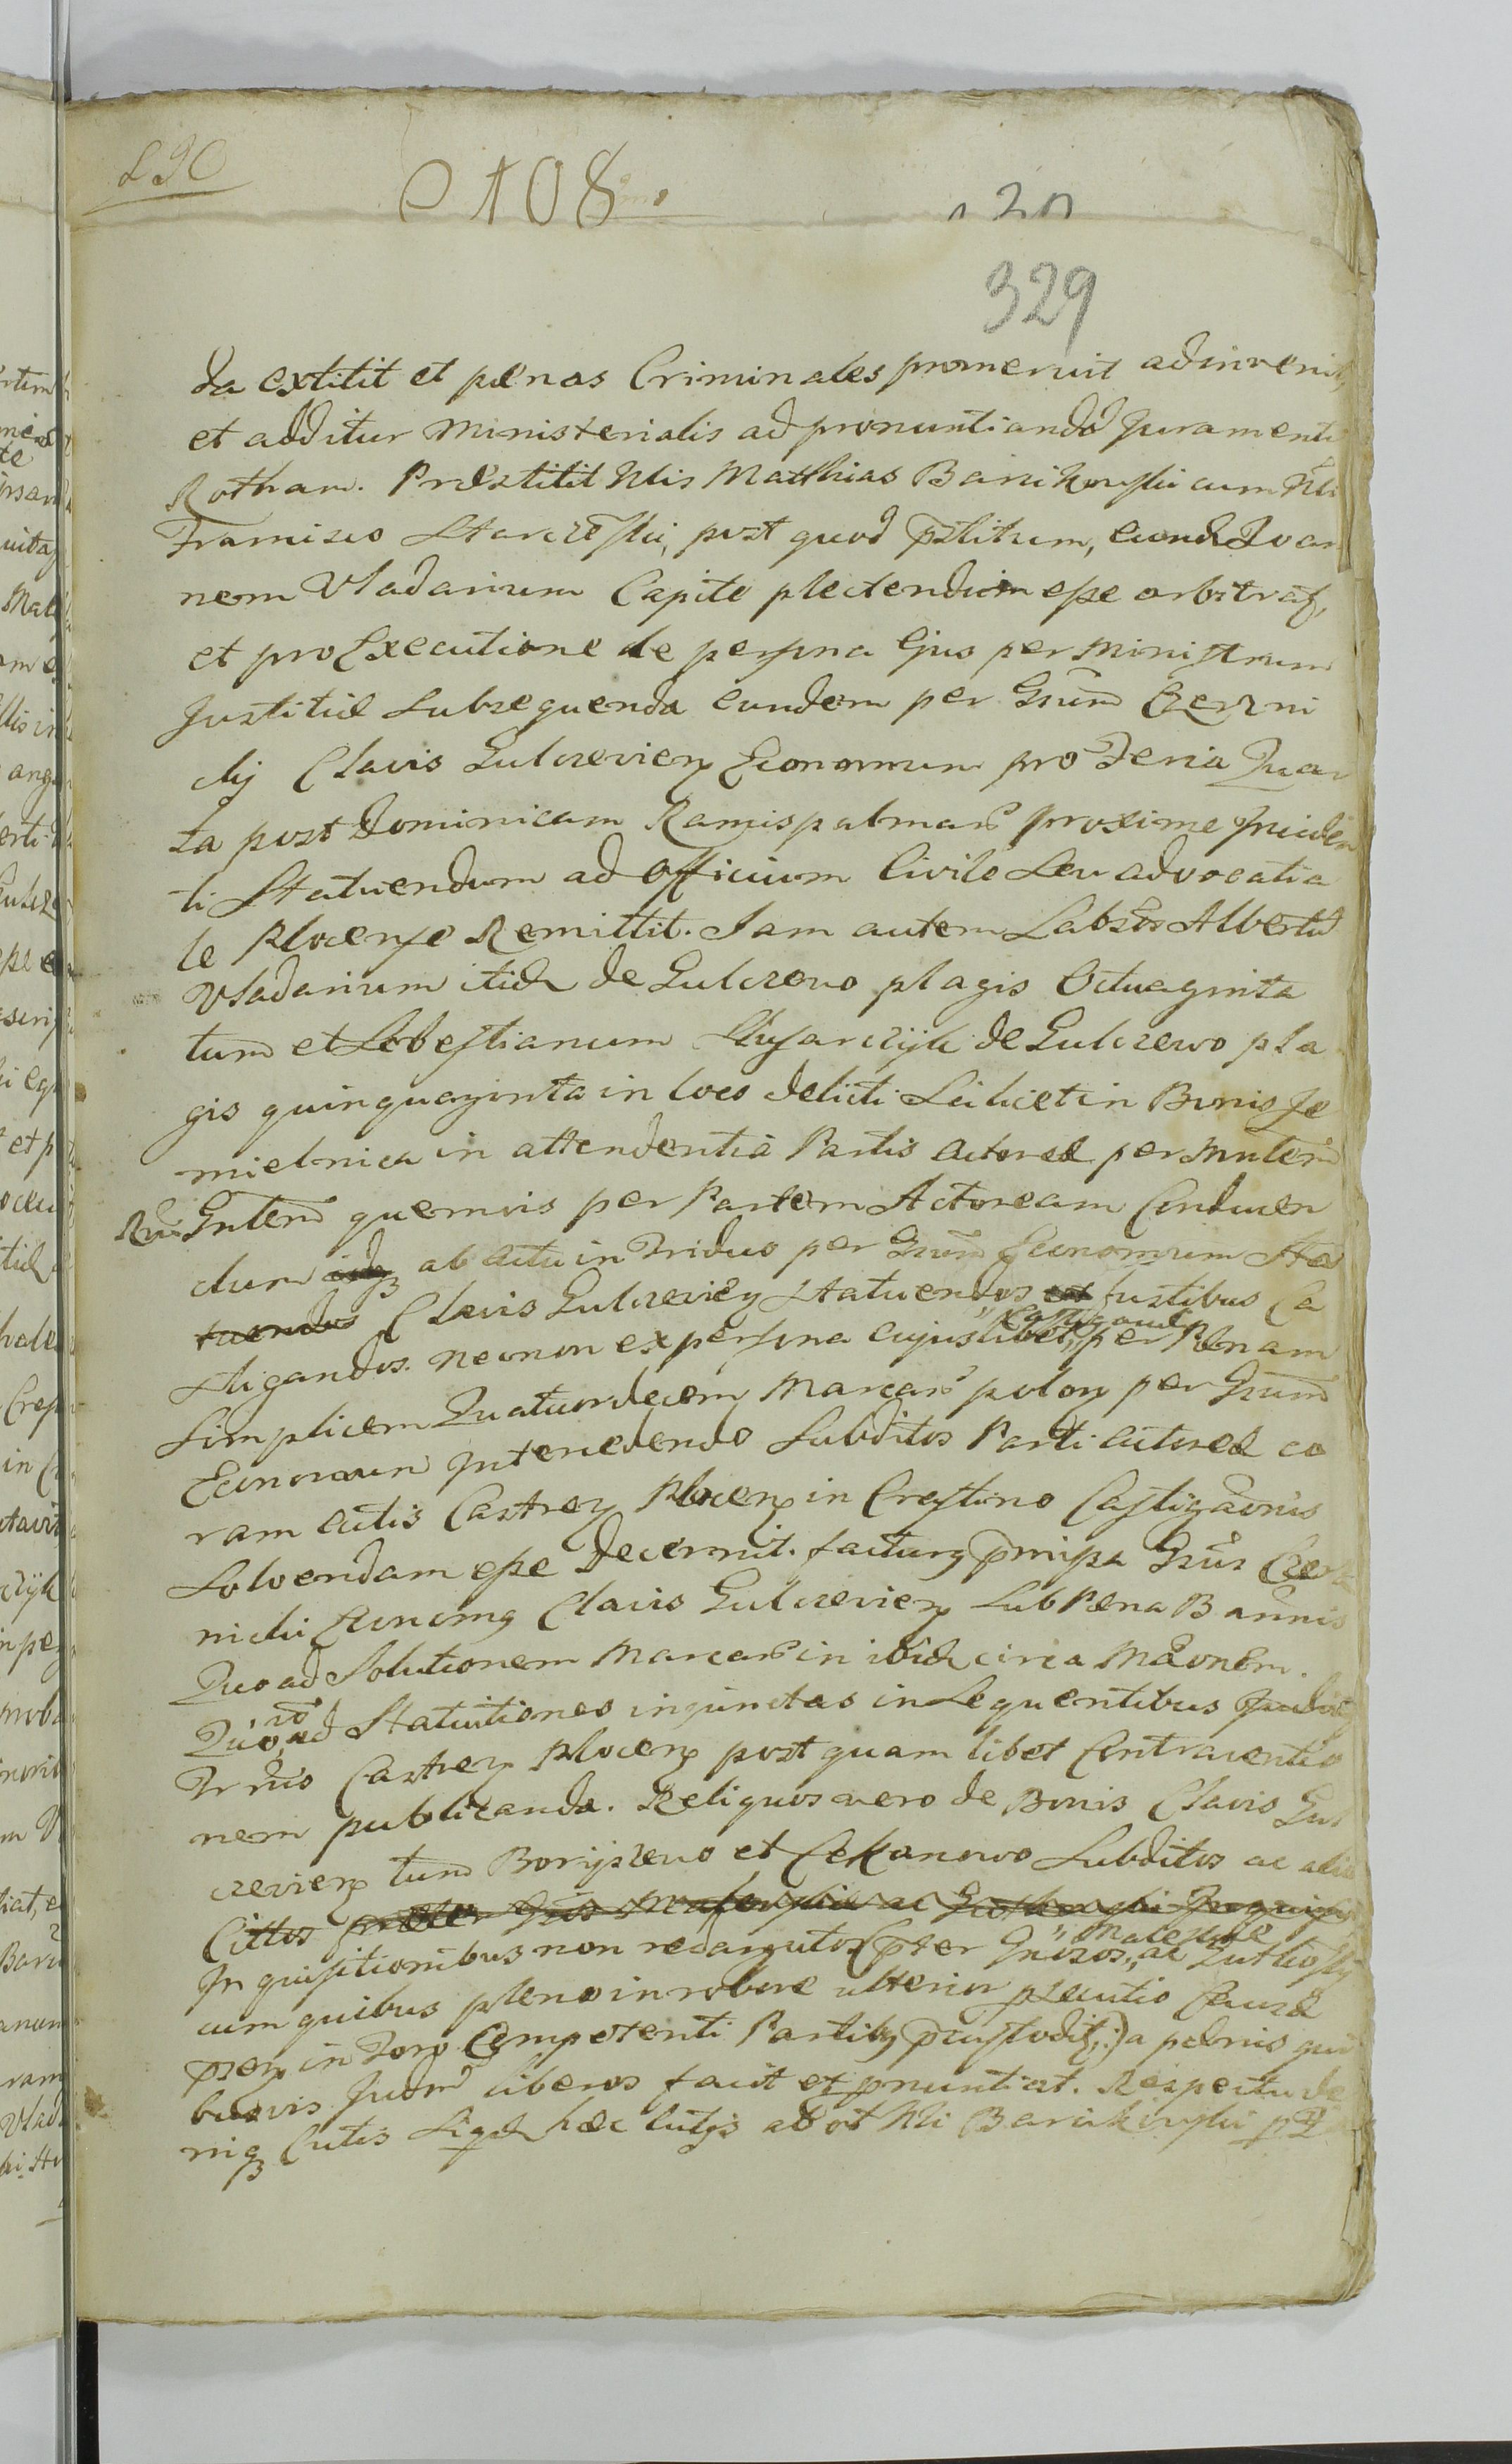 290
108
329
da extitit et pœnas Criminales promeruit adinvenit,
et additur Ministerialis ad pronuntiandã Juramenti
Rotham. Præstitit Nlis Matthias Barikowski cum Nli
Francisco Starczewski, post quod pstitum, eund Joan
nem Vladarium Capite plectendum esse arbitraț,
et pro Executione de persona Ejus per Ministrum
Justitiæ Subsequenda eundem per Gsum Czerni
ckij Clavis Gulczevien Economum pro Feria Quar
ta post Dominicam Ramispalmarũ proxime Inciden
ti Statuendum ad Officium Civile Seu advocatia
le Plocense Remittit. Jam autem Labsos Albertũ
Vladarium itid de Gulczewo plagis Octuaginta
tum et Sebestianum Slusarczyk de Gulczewo pla
gis quinquaginta in loco delicti Scilicet in Bonis Je
mielnica in attendentia Partis Actoreæ per Mnlem
Rni Gnlem quemvis per Partem Actoream Conducen
dum ab actu in Triduo per Gsum Economum Sta
tuendos Clavis Gulczevien Statuendos fustibus Ca
stigandos. necnon ex persona cujuslibet per Pœnam
Simplicem Quatuordecem Marcarũ polon per Gsum
Economum Intercedendo Subditos Parti Actoreæ co
ram actis Castren Plocen in Crastino Castigãonis
Solvendam esse Decernit. facturg pmissa Gsus Czer
nicki Economg Clavis Gulczevien Sub Pœna Bannis
Quo ad Solutionem Marcarũ in ibid circa Mãonem.
Quo vo ad Statuitiones injunctas in Sequentibus
Trnis Castren Plocen post quamlibet Contraventio
nem publicanda. Reliquos vero de Bonis Clavis Gul
czevien tum Boryszewo et Cekanowo Subditos ac alios
Cittos
Inquisitionibus non redargutos (pter Gnosos Malewskie ac
cum quibus pleno in robore ulterior psecutio Causæ
psen in Foro Competenti Partibg pcustodit,:) a pœnis qui
busvis Judm liberos facit et pnuntiat. Respectu de
niq Cutis